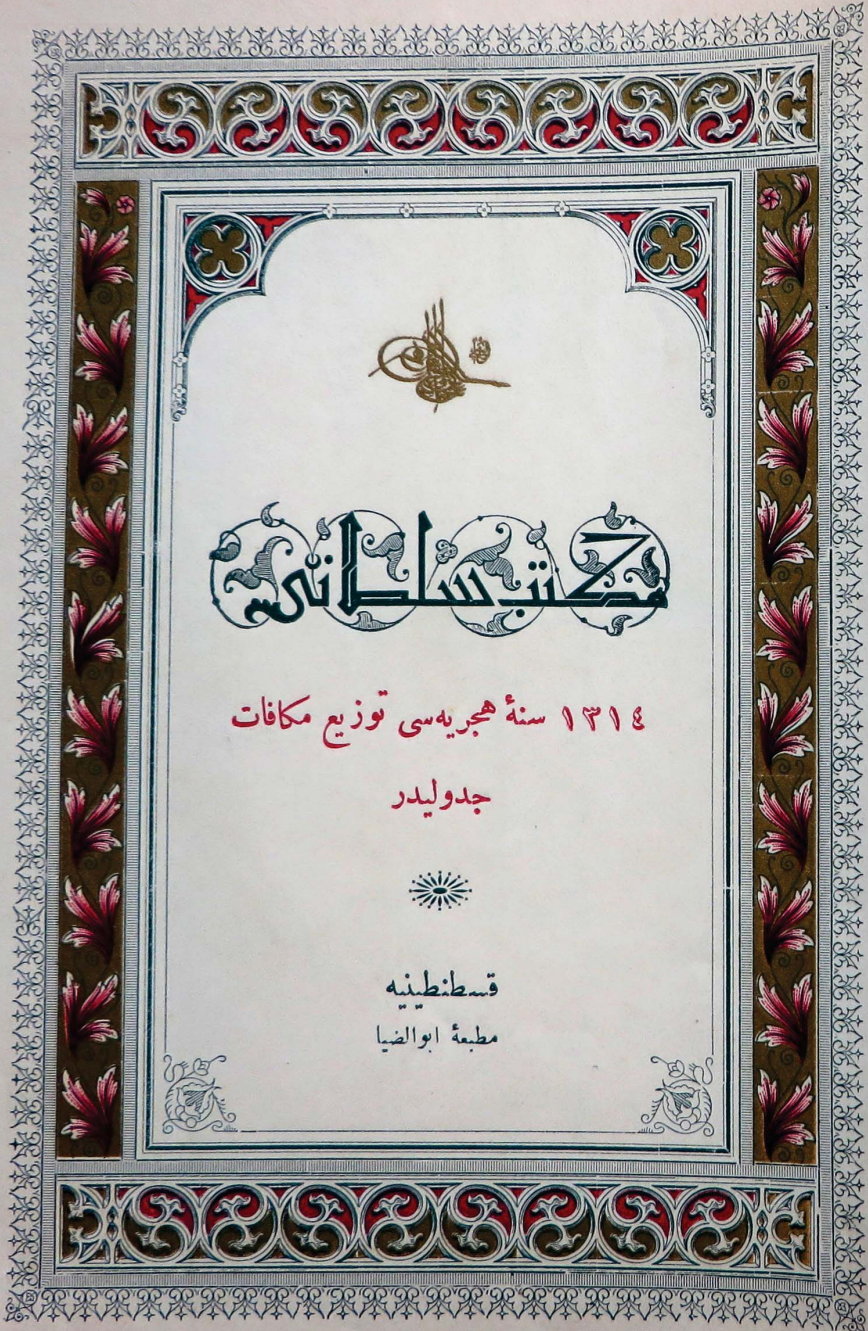 مكتب سلطانى
١٣١٤ سنهٔ هجريه‌سى توزيع مكافات
جدوليدر
قسطنطينيه
مطبعهٔ ابوالضيا